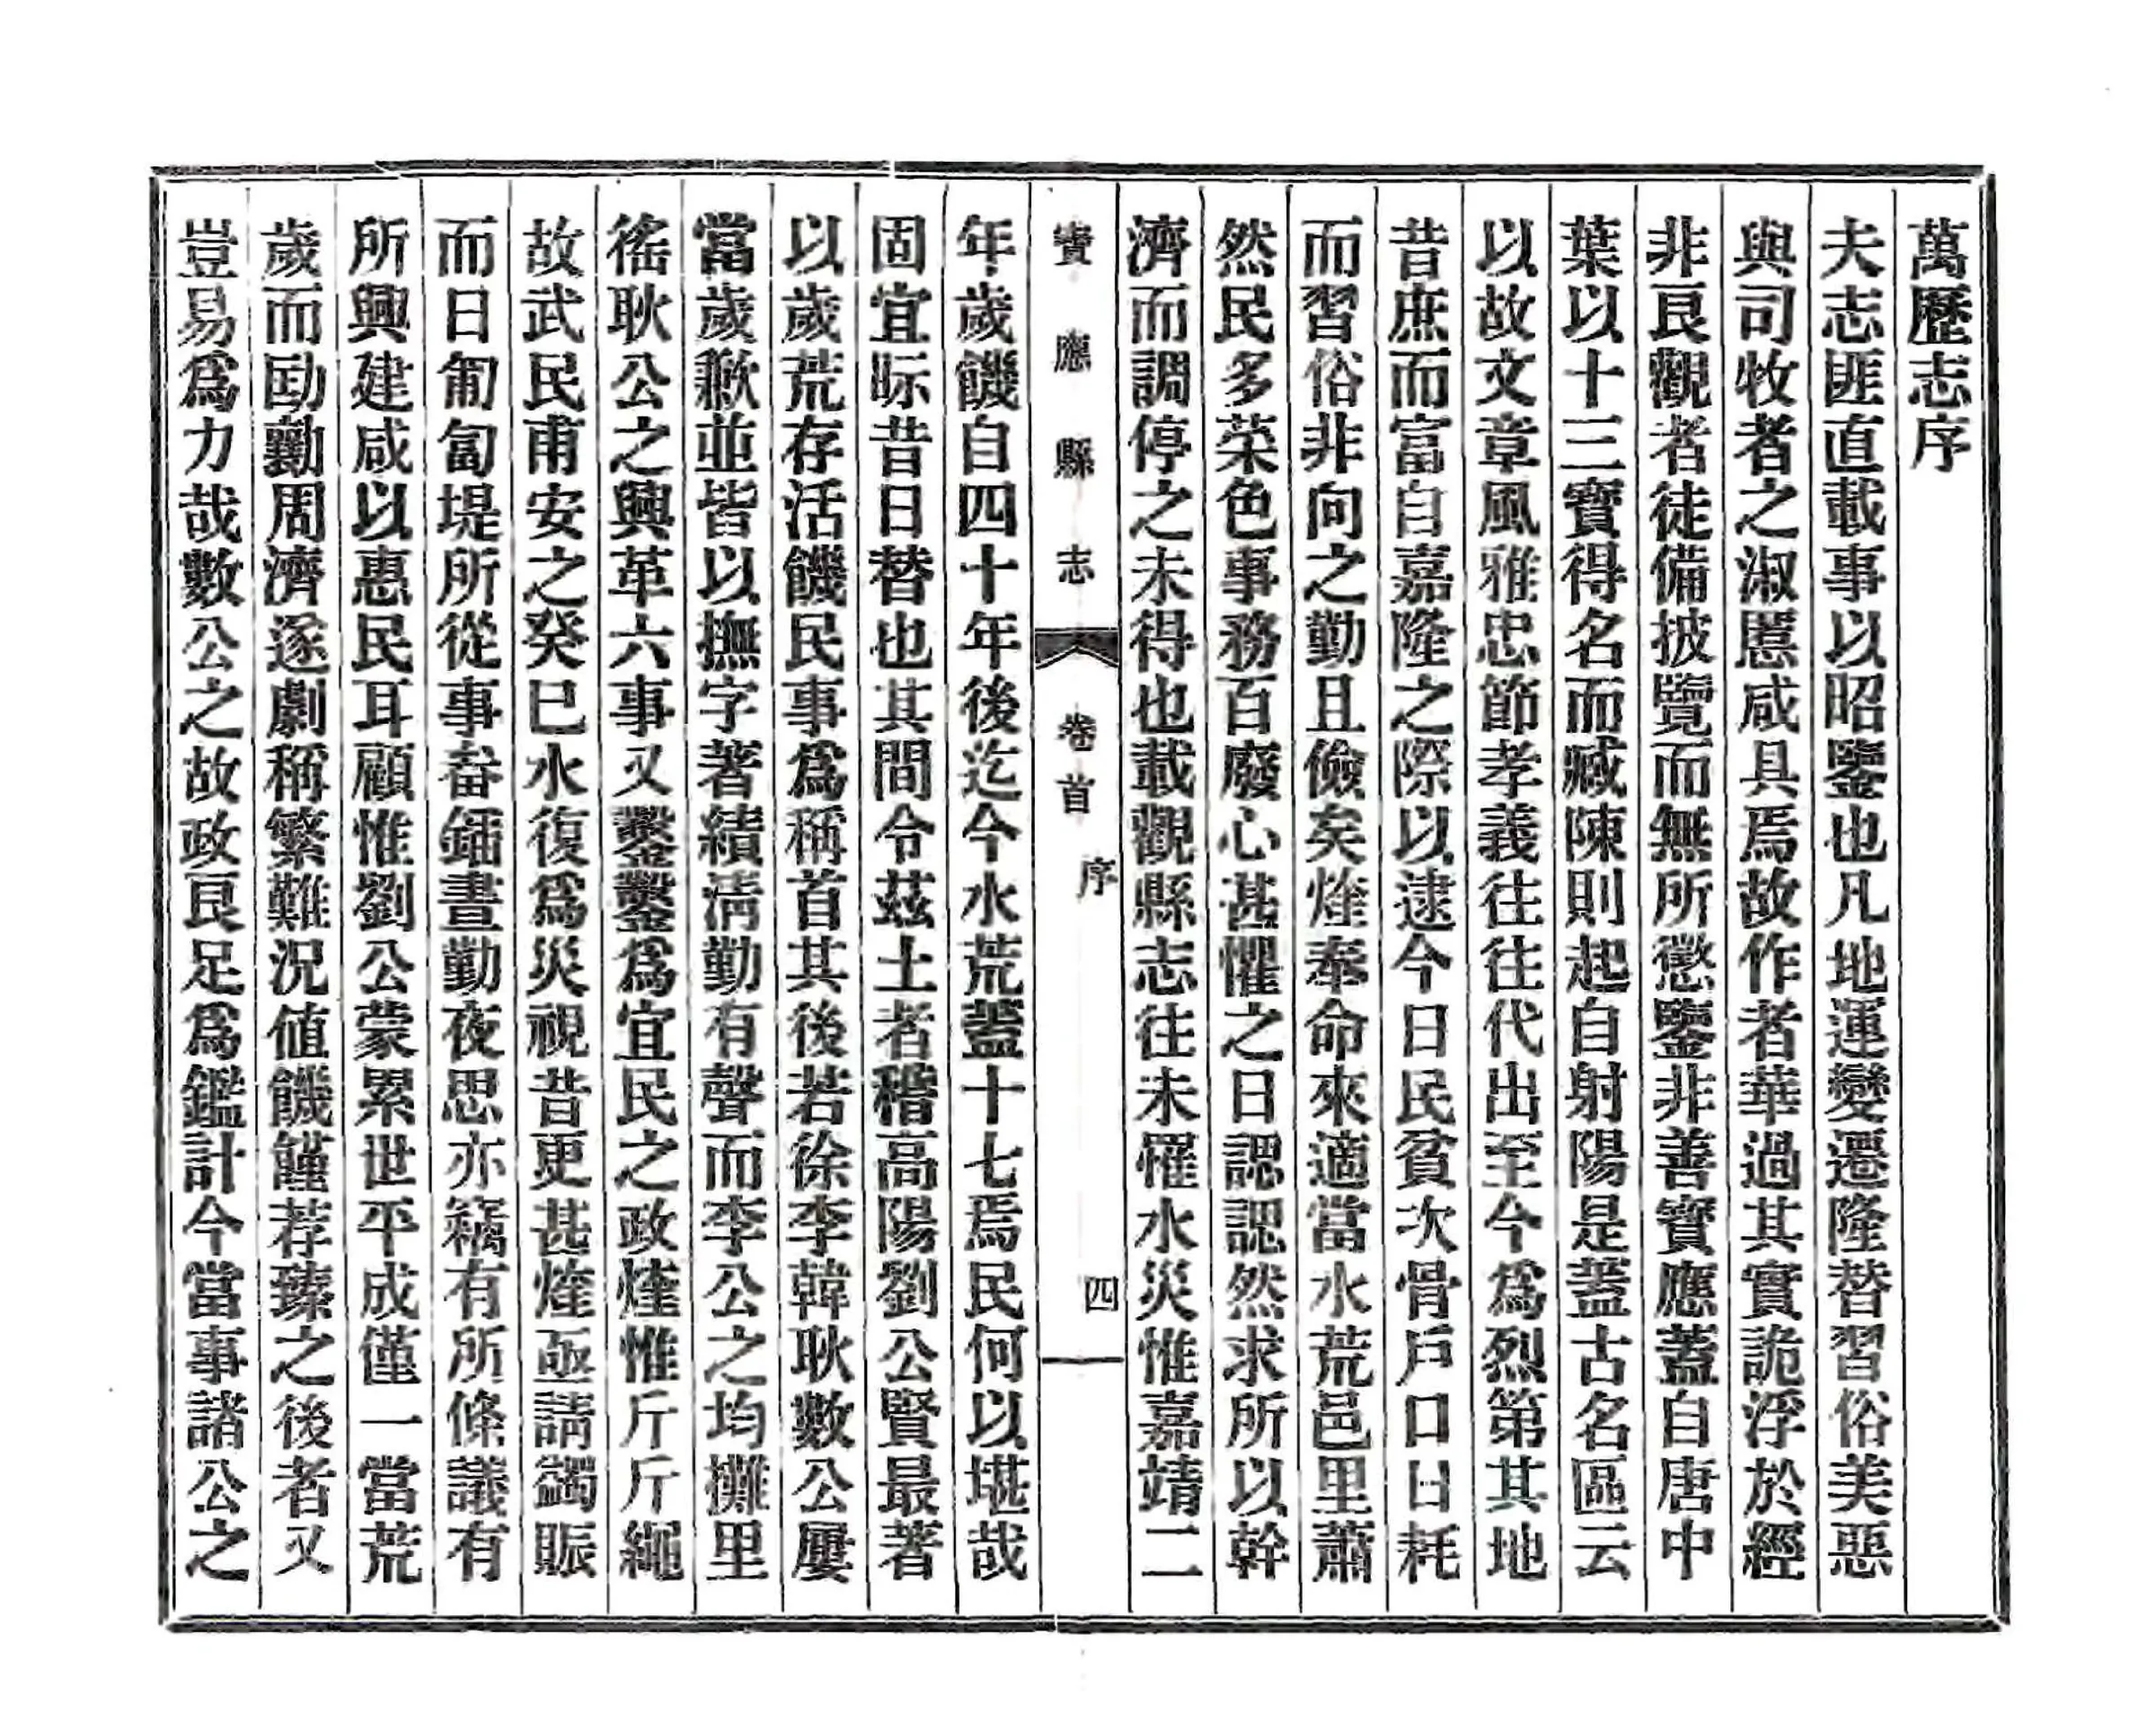 萬歷志序
夫志匪直載事以昭鑒也凡地運變遷隆替習俗美惡
與司牧者之淑慝咸具焉故作者華過其實詭浮於經
非良觀者徒備披覽而無所懲鑒非善寶應蓋自唐中
葉以十三寶得名而臧陳則起自射陽是蓋古名區云
以故文章風雅忠節孝義往往代出至今爲烈第其地
昔庶而富自嘉隆之際以逮今日民貧次骨戶口日耗
而習俗非向之勤且儉矣煃奉命來適當水荒邑里蕭
然民多菜色事務百廢心甚懼之日認認然求所以幹
濟而調停之未得也載觀縣志往未罹水災惟嘉靖二
寶應縣志 卷首 序 四
年歲饑自四十年後迄今水荒蓋十七焉民何以堪哉
固宜眎昔日替也其間令茲土者稽高陽劉公賢最著
以歲荒存活饑民事爲稱首其後若徐李韓耿數公屢
當歲歉並皆以撫字著績淸勤有聲而李公之均攤里
徭耿公之興革六事又鑿鑿爲宜民之政煃惟斤斤繩
故武民甫安之癸巳水復爲災視昔更甚煃亟請蠲賑
而日匍匐堤所從事畚鍤晝勤夜思亦竊有所條議有
所興建咸以惠民耳顧惟劉公蒙累世平成僅一當荒
歲而劻勷周濟遂劇稱繁難況値饑饉荐臻之後者又
豈易爲力哉數公之故政良足爲鑑計今當事諸公之